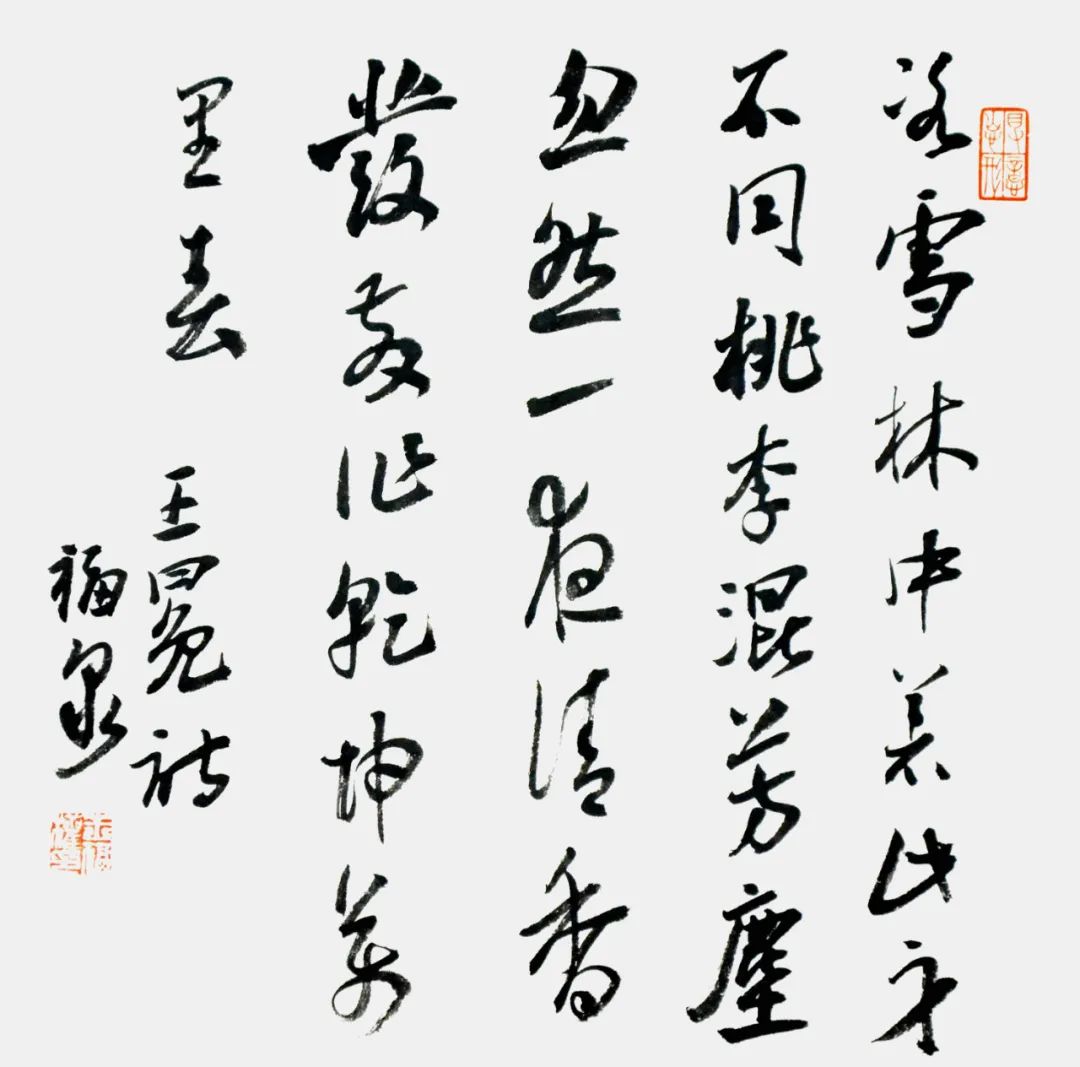 冰雪林中著此身
不同桃李混芳塵
忽然一夜清香
發散作乾坤萬
里春 王冕詩
福泉